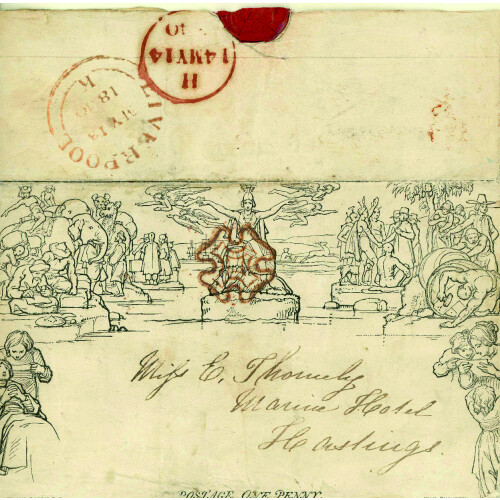 H
14MY14
LIVERPOOL
MY 13
1840
K
Miss E. Thornely
Marine Hotel
Hastings.
POSTAGE ONE PENNY.